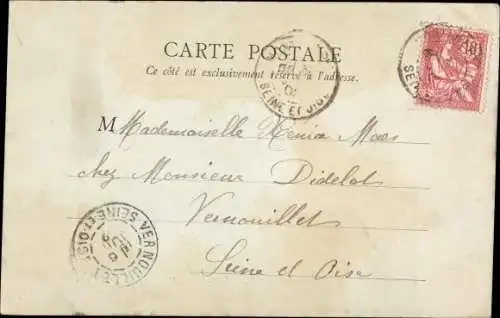 CARTE POSTALE
Ce côté est exclusivement réservé à l'adresse.
10
SEINE ET OISE
M Mademoiselle Xenia Maes
chez Monsieur Didelot
Vernouillet
Seine et Oise
VERNOUILLET
SEINE-ET-OISE